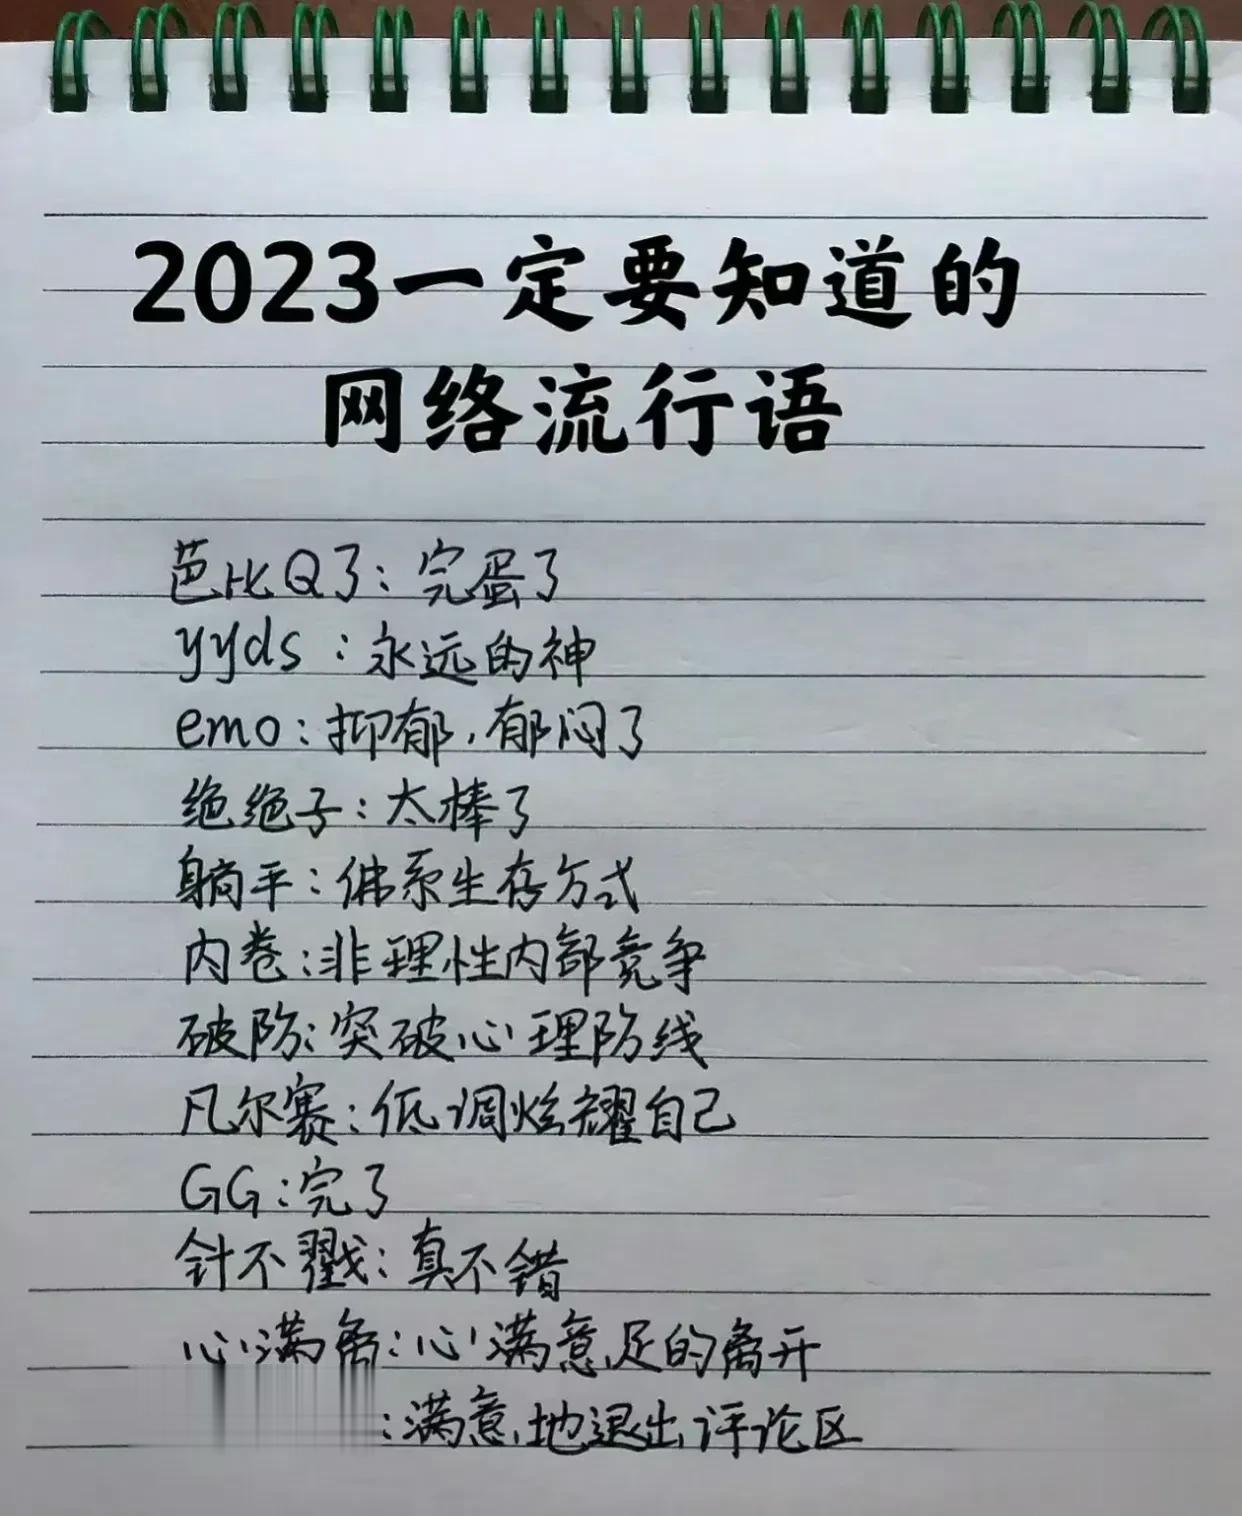 2023一定要知道的
网络流行语
芭比Q了：完蛋了
yyds：永远的神
emo：抑郁，郁闷了
绝绝子：太棒了
躺平：佛系生存方式
内卷：非理性内部竞争
破防：突破心理防线
凡尔赛：低调炫耀自己
GG：完了
针不戳：真不错
心满离：心满意足的离开
：满意地退出评论区